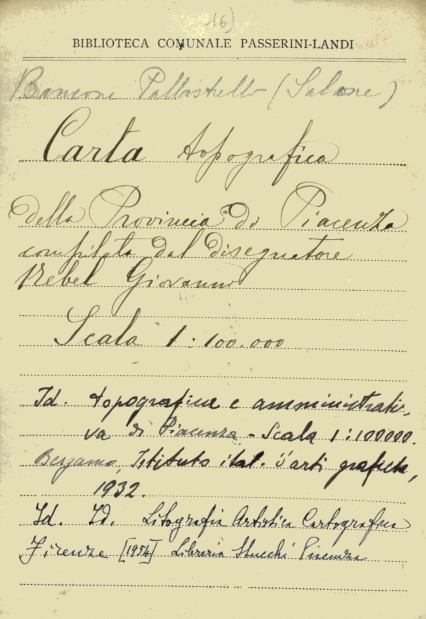 16)
BIBLIOTECA COMUNALE PASSERINI-LANDI
(Salone)
Carta topografica
della Provincia di Piacenza
compilata dal disegnatore
Rebel Giovanni
Scala 1:100.000
Id. topografica e amministrati-
va di Piacenza - Scala 1:100000.
Bergamo, Istituto ital. d'arti grafiche,
1932.
Id. Id. Litografia Artistica Cartografica
Firenze [1954] Libreria Piacenza